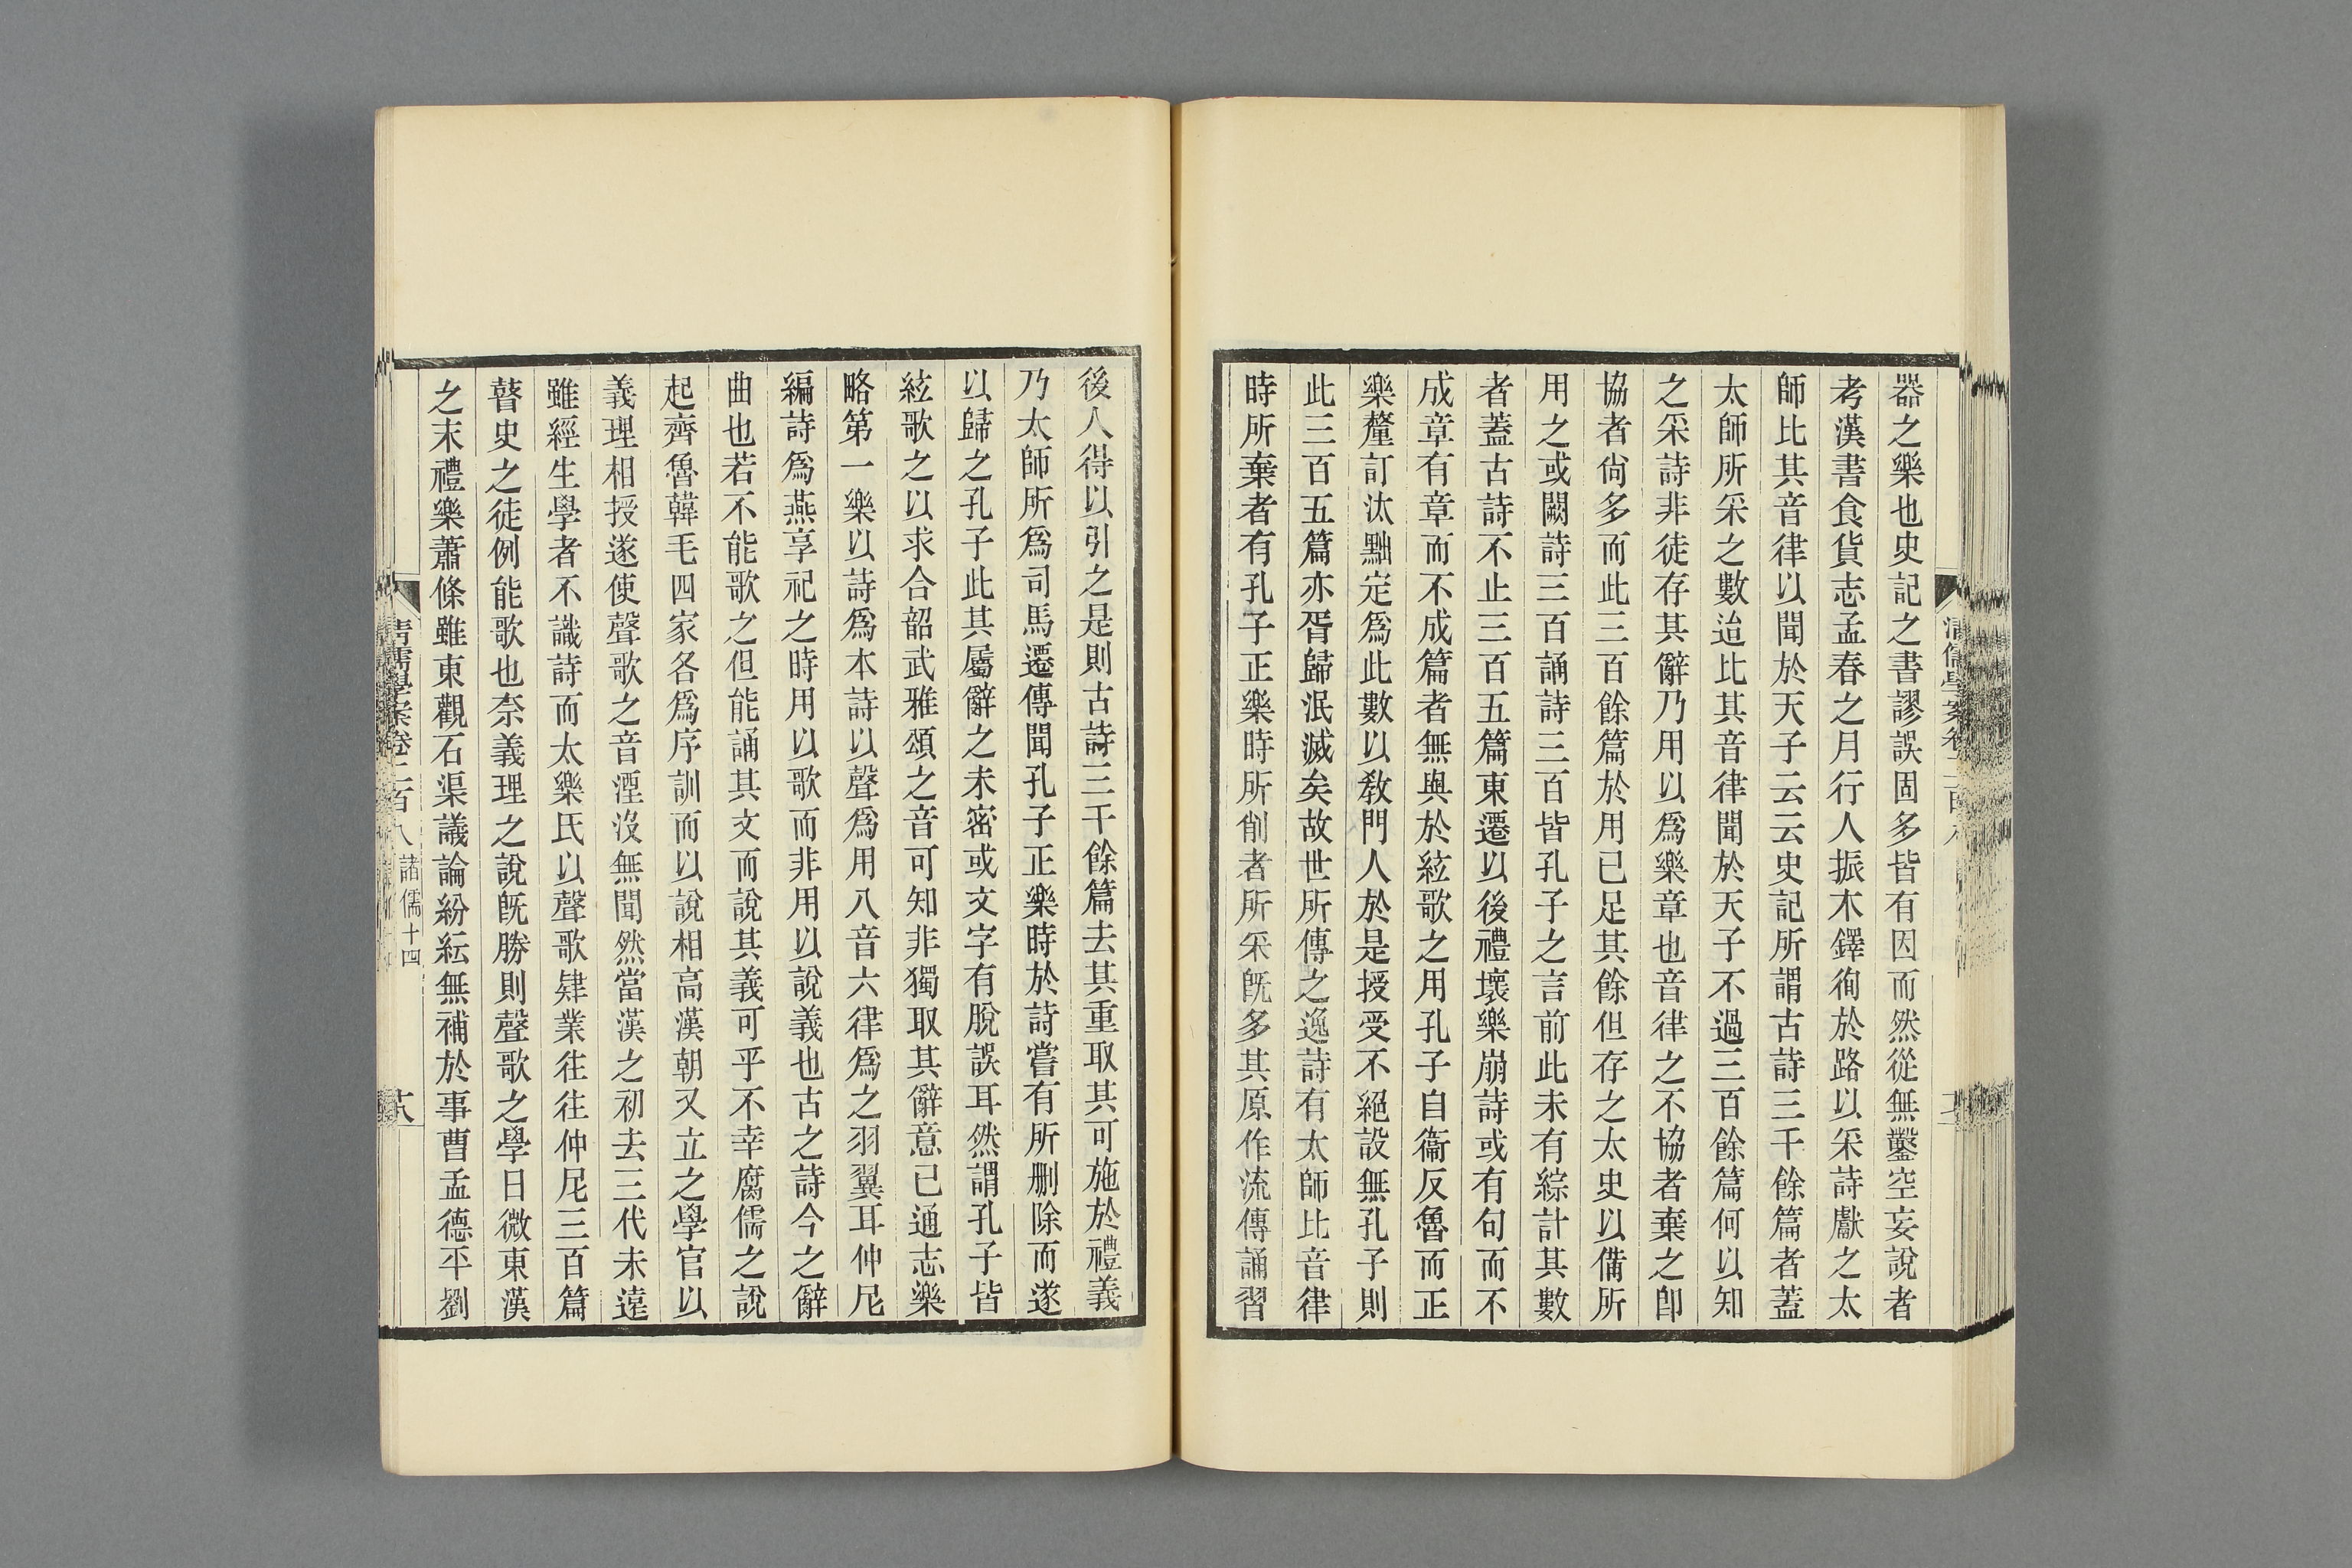 器之樂也史記之書謬誤固多皆有因而然從無鑿空妄說者
考漢書食貨志孟春之月行人振木鐸徇於路以采詩獻之太
師比其音律以聞於天子云云史記所謂古詩三千餘篇者蓋
太師所采之數迨比其音律聞於天子不過三百餘篇何以知
之采詩非徒存其辭乃用以爲樂章也音律之不協者棄之卽
協者尙多而此三百餘篇於用已足其餘但存之太史以備所
用之或闕詩三百誦詩三百皆孔子之言前此未有綜計其數
者蓋古詩不止三百五篇東遷以後禮壞樂崩詩或有句而不
成章有章而不成篇者無與於絃歌之用孔子自衞反魯而正
樂釐訂汰黜定爲此數以敎門人於是授受不絕設無孔子則
此三百五篇亦胥歸泯滅矣故世所傳之逸詩有太師比音律
時所棄者有孔子正樂時所削者所采旣多其原作流傳誦習
後人得以引之是則古詩三千餘篇去其重取其可施於禮義
乃太師所爲司馬遷傳聞孔子正樂時於詩嘗有所刪除而遂
以歸之孔子此其屬辭之未密或文字有脫誤耳然謂孔子皆
絃歌之以求合韶武雅頌之音可知非獨取其辭意已通志樂
略第一樂以詩爲本詩以聲爲用八音六律爲之羽翼耳仲尼
編詩爲燕享祀之時用以歌而非用以說義也古之詩今之辭
曲也若不能歌之但能誦其文而說其義可乎不幸腐儒之說
起齊魯韓毛四家各爲序訓而以說相高漢朝又立之學官以
義理相授遂使聲歌之音湮沒無聞然當漢之初去三代未遠
雖經生學者不識詩而太樂氏以聲歌肄業往往仲尼三百篇
瞽史之徒例能歌也奈義理之說旣勝則聲歌之學日微東漢
之末禮樂蕭條雖東觀石渠議論紛紜無補於事曹孟德平劉
清儒學案卷二百八 諸儒十四